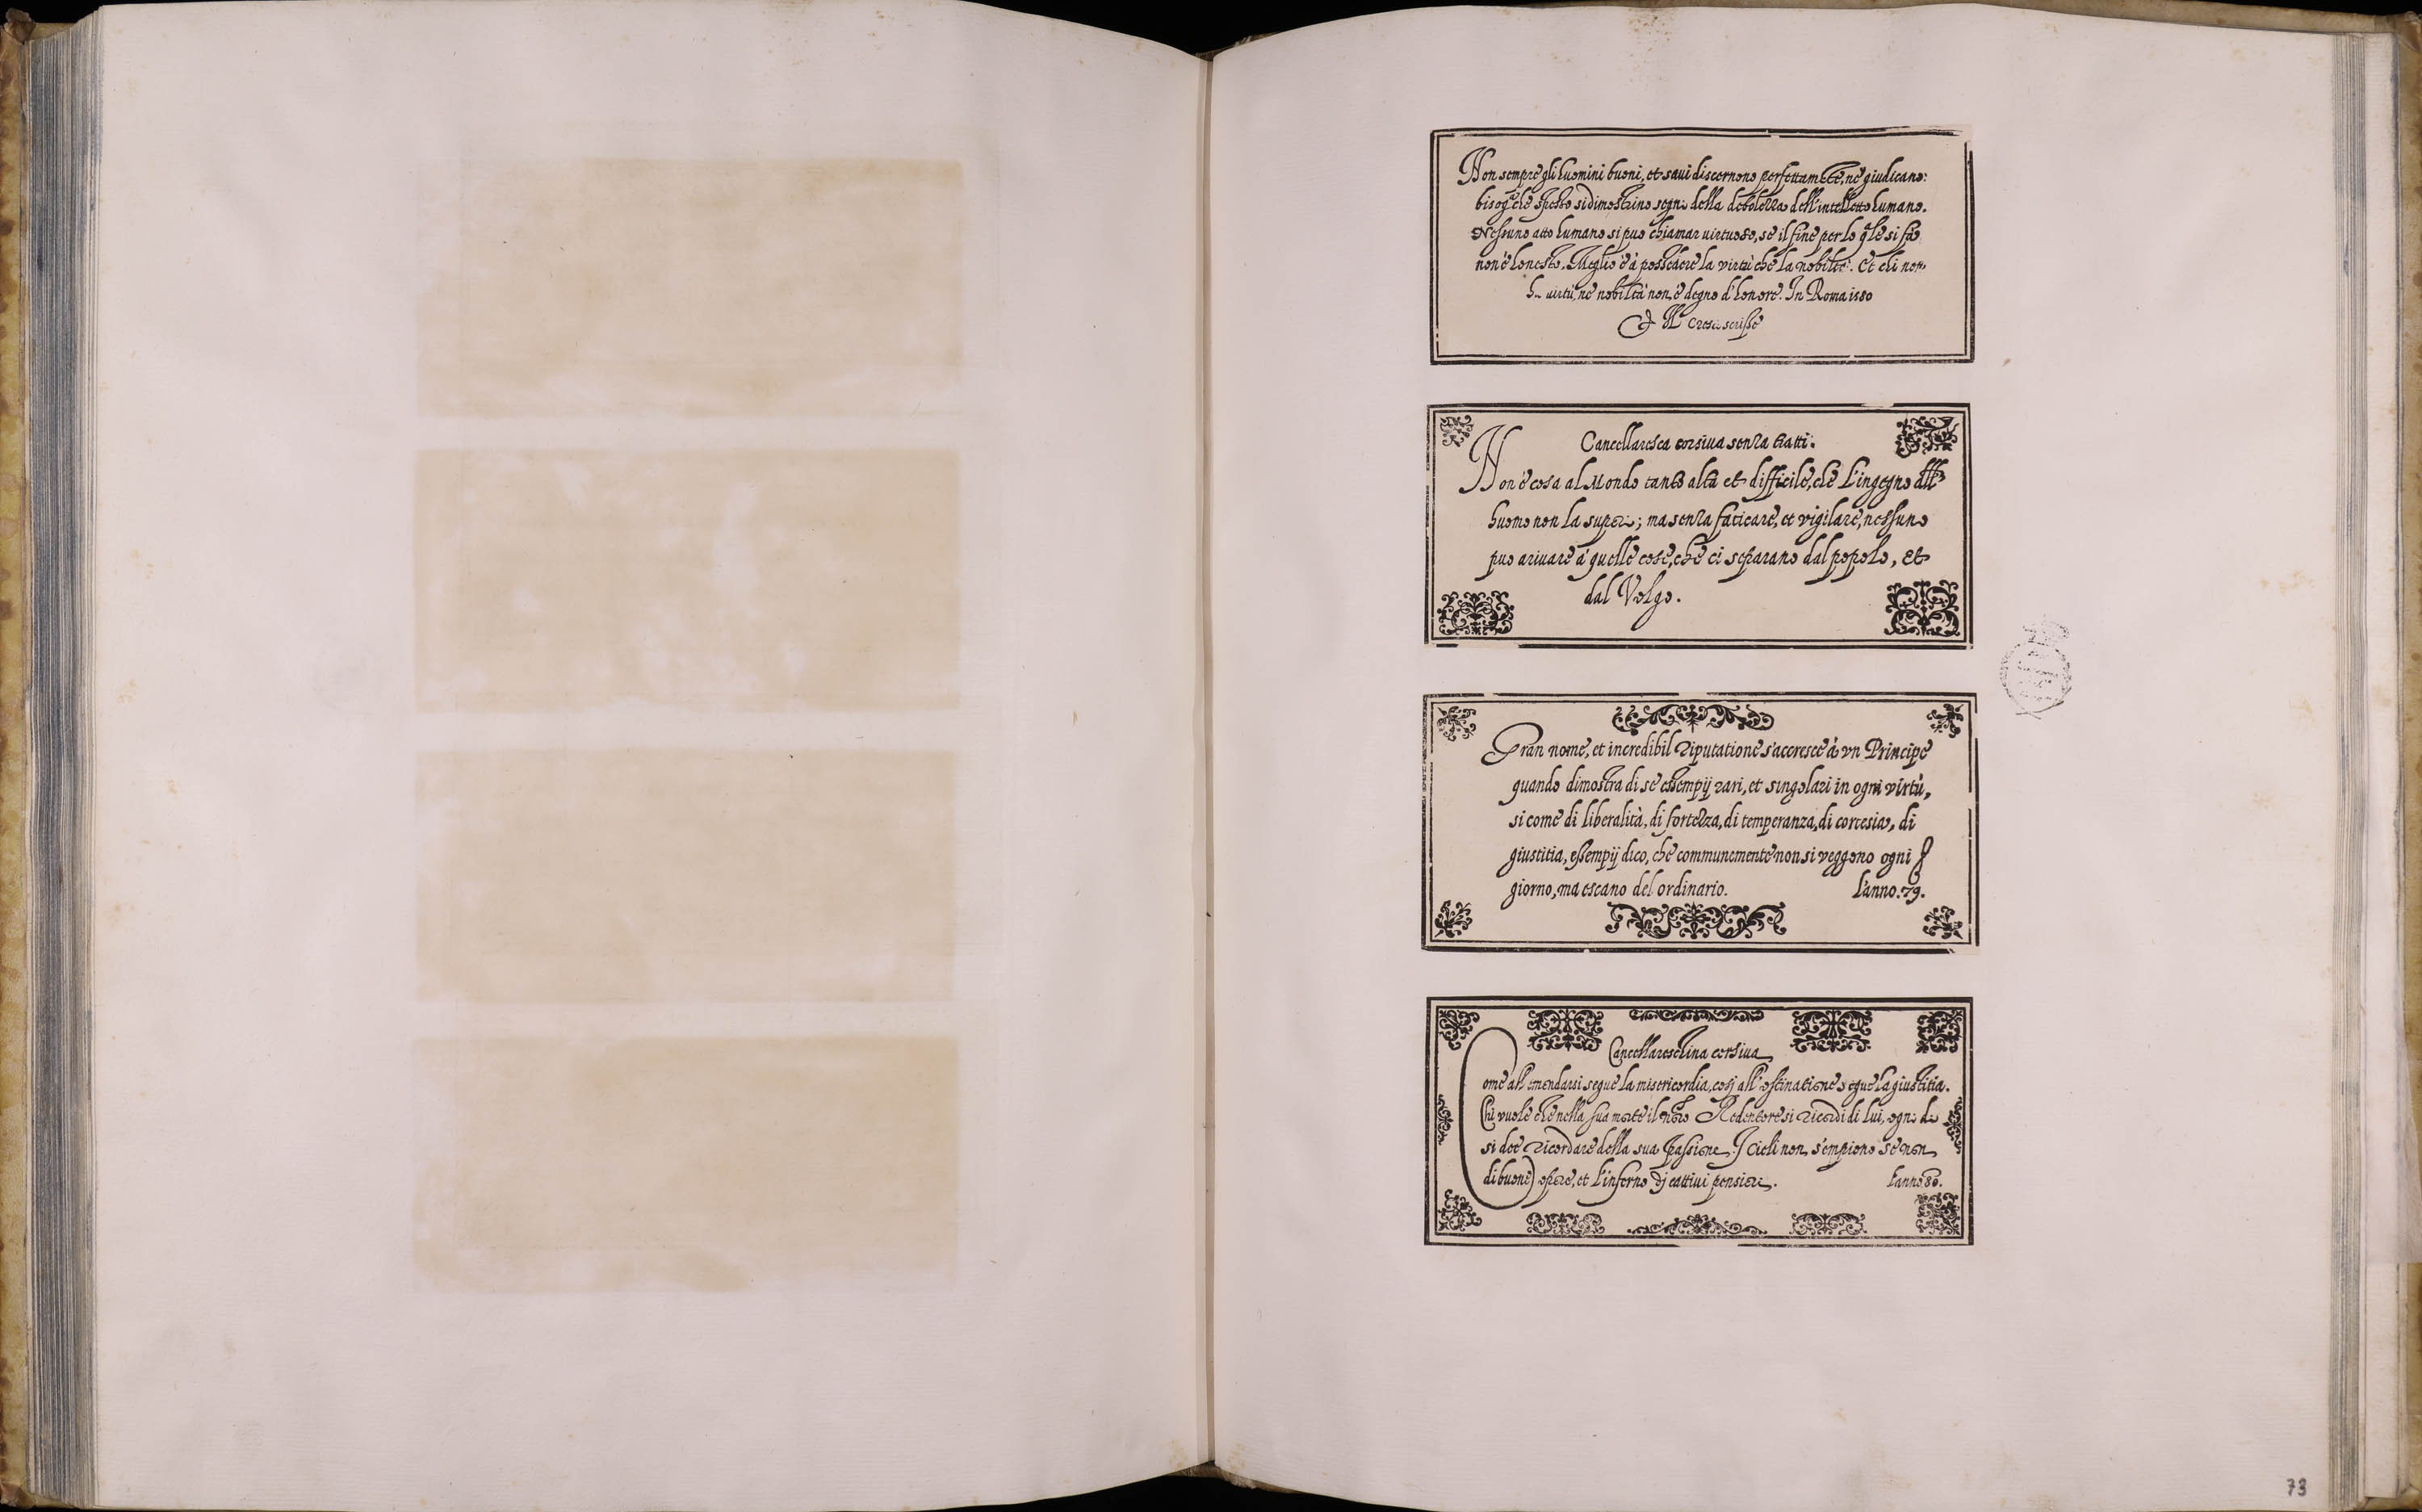 Non sempre gli huomini buoni, et saui discernono perfettamēte, ne giudicano:
bisogā che spesso si dimostrino segni della debolezza dell'intelletto humano.
Nessuno atto humano si puo chiamar uirtuoso, se il fine per lo q̃le si fa
non è honesto. Meglio è à possedere la virtù che la nobiltà. Et chi non
ha uirtù, ne nobiltà non è degno d'honore. In Roma 1580
Il Cresci scrisse
Cancellaresca corsiua senza tratti.
Non è cosa al Mondo tanto alta et difficile, che l'ingegno dell'
huomo non la superi; ma senza faticare, et vigilare, nessuno
puo ariuare à quelle cose, che ci separano dal popolo, et
dal Volgo.
Gran nome, et incredibil riputatione s'accresce à vn Principe
quando dimostra di se essempij rari, et singolari in ogni virtù,
si come di liberalità, di fortezza, di temperanza, di cortesia, di
giustitia, essempij dico, che communemente non si veggono ogni
giorno, ma escano del ordinario. L'anno. 79.
Cancellareschina corsiua
Come all'emendarsi segue la misericordia, cosj all'ostinatione segue la giustitia.
Chi vuole che nella sua morte il nr̃o Redentore si ricordi di lui, ogni dì
si dee ricordare della sua passione. I cieli non s'empiono se non
di buone opere, et l'inferno dj cattiui pensieri. L'anno 80.
73